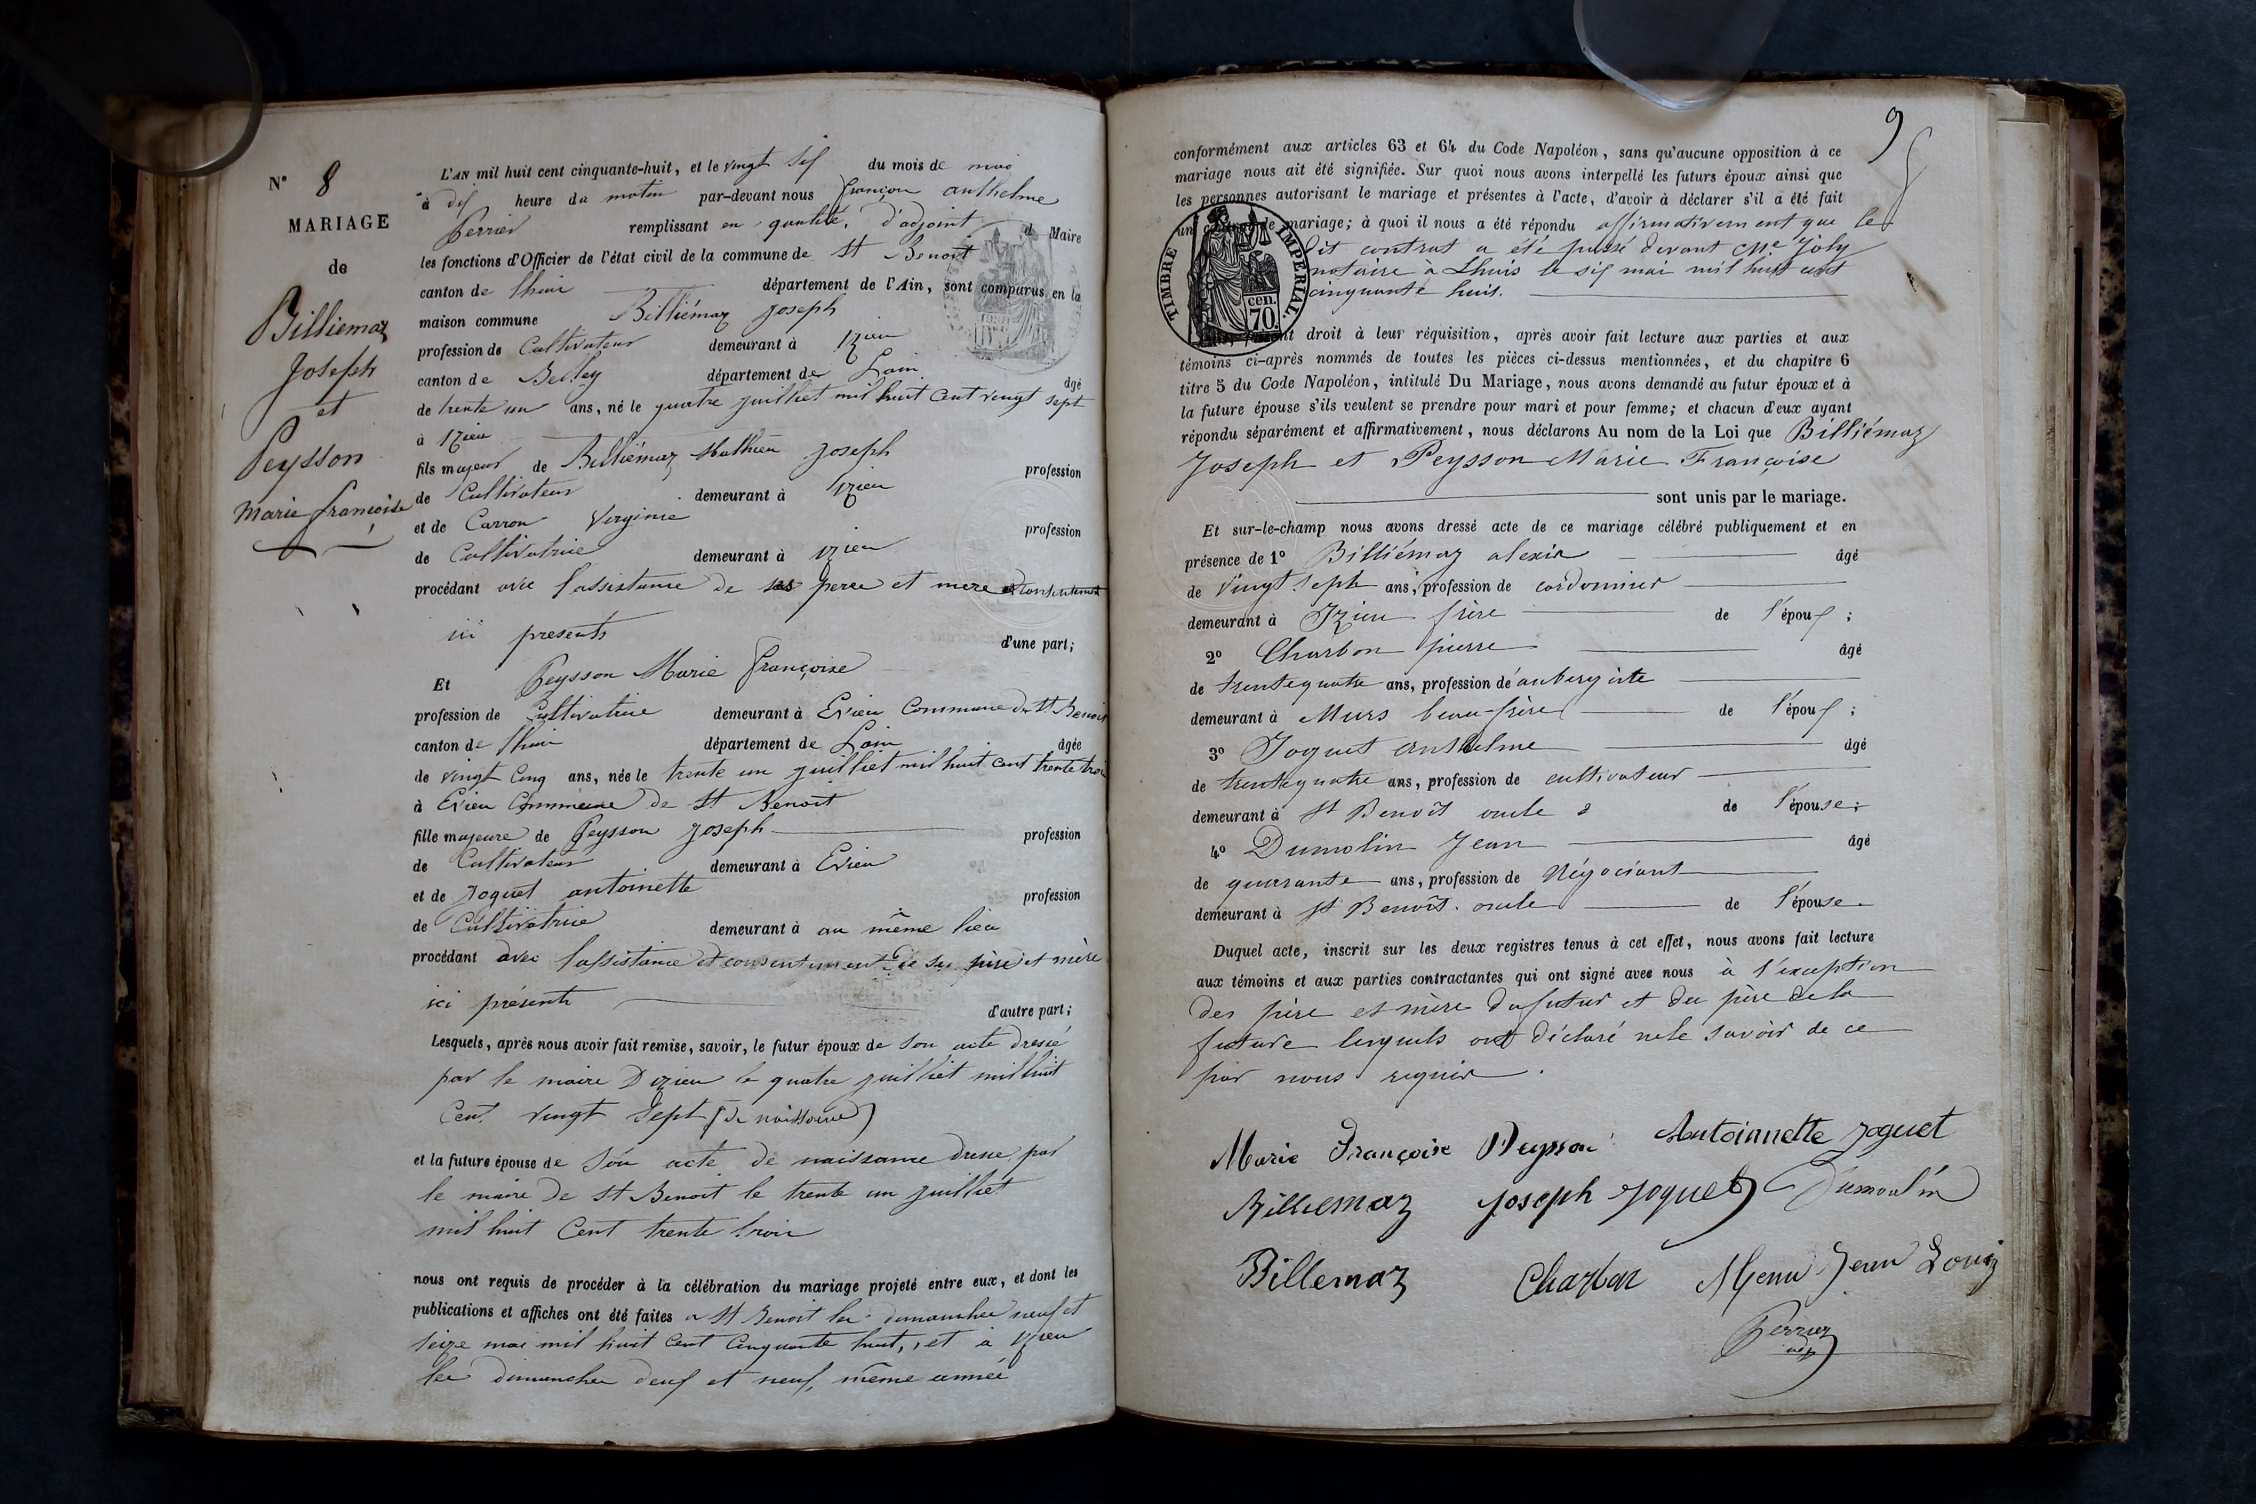 N° 8
MARIAGE
de
Billiemaz
Joseph
et
Peysson
Marie françoise
L'AN mil huit cent cinquante-huit, et le vingt six du mois de mai
à dix heure du matin par-devant nous françois anthelme
Perrier remplissant en qualité d'adjoint Maire
les fonctions d'Officier de l'état civil de la commune de St Benoit
canton de lhuis département de l'Ain, sont comparus en la
maison commune Billiémaz Joseph
profession de Cultivateur demeurant à izieu
canton de Belley département de Lain âgé
de trente un ans, né le quatre juilliet mil huit Cent vingt sept
à izieu
fils majeur de Billiémaz Mathieu Joseph profession
de Cultivateur demeurant à izieu
et de Carron Virginie profession
de Cultivatrice demeurant à izieu
procédant avec l'assistance de ses perre et mere et consentement
ici presents d'une part;
Et Peysson Marie françoise
profession de Cultivatrice demeurant à Evieu Commune de St Benoit
canton de lhuis département de Lain âgée
de vingt Cinq ans, née le trente un juilliet mil huit Cent trente trois
à Evieu Commune de St Benoit
fille majeure de Peysson Joseph profession
de Cultivateur demeurant à Evieu
et de Joguet antoinette profession
de Cultivatrice demeurant à au même lieu
procédant avec l'assistance et consentement de ses père et mère
ici présents d'autre part;
Lesquels, après nous avoir fait remise, savoir, le futur époux de Son acte dressé
par le maire D'izieu le quatre juilliet mil huit
Cent vingt Sept (de naissance)
et la future épouse de Son acte de naissance dressé par
le maire de St Benoit le trente un juilliet
mil huit Cent trente trois
nous ont requis de procéder à la célébration du mariage projeté entre eux, et dont les
publications et affiches ont été faites a St Benoit les dimanches neuf et
seize mai mil huit Cent Cinquante huit, et à izieu
les dimanches deux et neuf, même année
9
conformément aux articles 63 et 64 du Code Napoléon, sans qu'aucune opposition à ce
mariage nous ait été signifiée. Sur quoi nous avons interpellé les futurs époux ainsi que
les personnes autorisant le mariage et présentes à l'acte, d'avoir à déclarer s'il a été fait
un de mariage; à quoi il nous a été répondu affirmativement que le
dit contrat a été passé devant Me Joly
notaire à Lhuis le six mai mil huit cent
cinquante huit.
TIMBRE IMPÉRIAL.
cen.
70.
droit à leur réquisition, après avoir fait lecture aux parties et aux
témoins ci-après nommés de toutes les pièces ci-dessus mentionnées, et du chapitre 6
titre 5 du Code Napoléon, intitulé Du Mariage, nous avons demandé au futur époux et à
la future épouse s'ils veulent se prendre pour mari et pour femme; et chacun d'eux ayant
répondu séparément et affirmativement, nous déclarons Au nom de la Loi que Billiémaz
Joseph et Peysson Marie Françoise
sont unis par le mariage.
Et sur-le-champ nous avons dressé acte de ce mariage célébré publiquement et en
présence de 1° Billiémaz alexis âgé
de Vingt sept ans, profession de cordonnier
demeurant à Izieu frère de l'époux;
2° Charbon pierre âgé
de trente quatre ans, profession de aubergiste
demeurant à Murs beau-frère de l'époux;
3° Joguet Anthelme âgé
de trente quatre ans, profession de cultivateur
demeurant à St Benoît oncle de l'épouse;
4° Dumolin Jean âgé
de quarante ans, profession de Négociant
demeurant à St Benoît oncle de l'épouse
Duquel acte, inscrit sur les deux registres tenus à cet effet, nous avons fait lecture
aux témoins et aux parties contractantes qui ont signé avec nous à l'exception
des père et mère du futur et du père de la
future lesquels ont déclaré ne le savoir de ce
par nous requis.
Marie Françoise Peysson Antoinette Joguet
Billiemaz Joseph Joguet Dumoulin
Billemaz Charbon Jean Louis
Perrier
adj